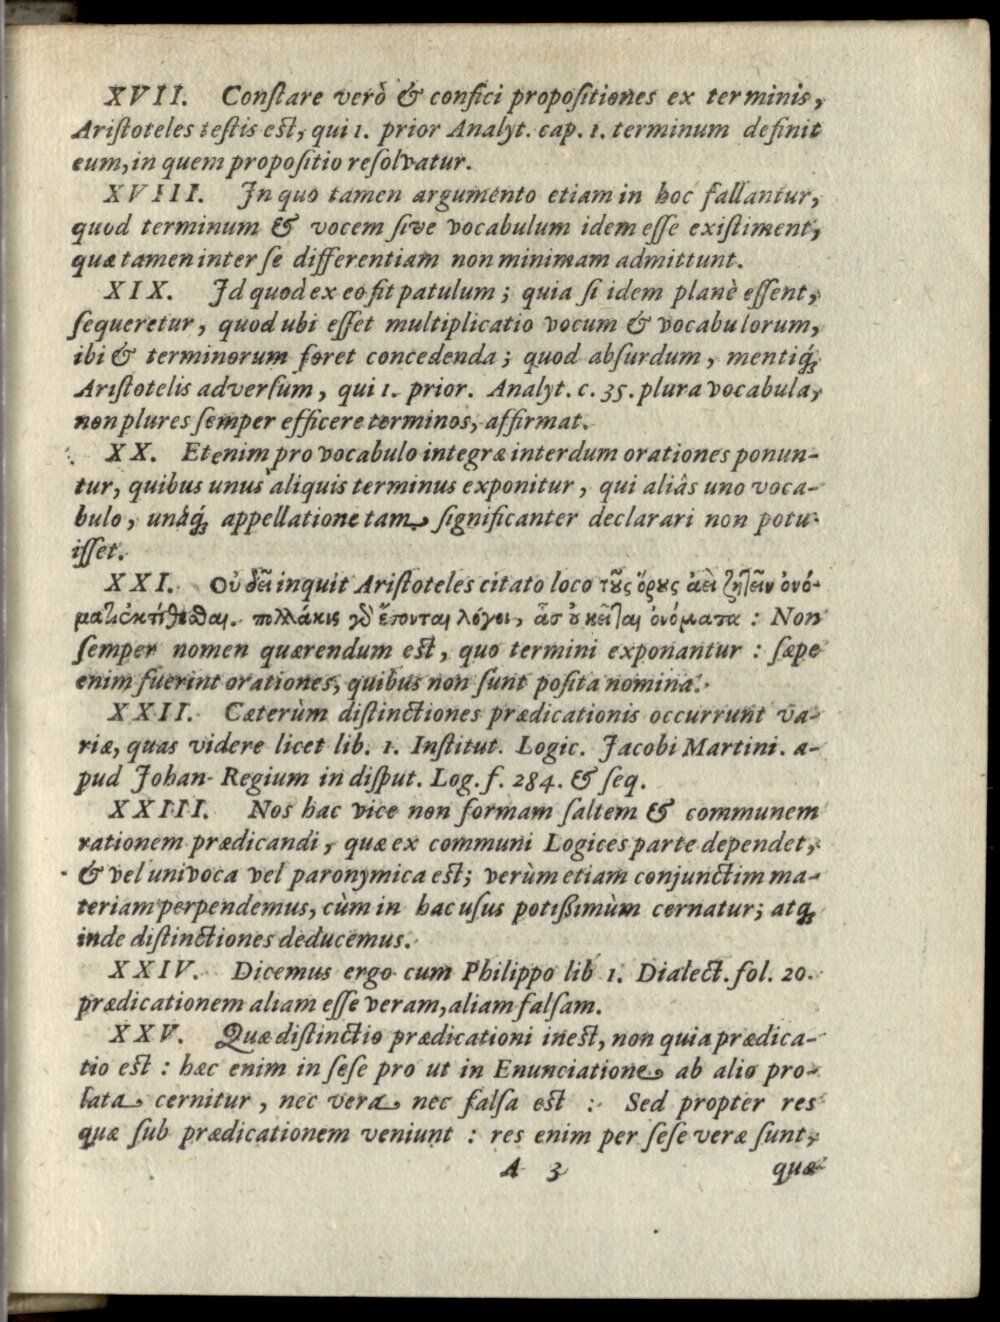 XVII. Conſtare verò & confici propoſitiones ex terminis,
Ariſtoteles teſtis eſt, qui 1. prior Analyt. cap. 1. terminum definit
eum, in quem propoſitio reſolvatur.
XVIII. In quo tamen argumento etiam in hoc fallantur,
quod terminum & vocem ſive vocabulum idem eſſe exiſtiment,
quæ tamen inter ſe differentiam non minimam admittunt.
XIX. Id quod ex eo fit patulum; quia ſi idem planè eſſent,
ſequeretur, quod ubi eſſet multiplicatio vocum & vocabulorum,
ibi & terminorum foret concedenda; quod abſurdum, mentiq́;
Ariſtotelis adverſum, qui 1. prior. Analyt. c. 35. plura vocabula,
non plures ſemper efficere terminos, affirmat.
XX. Etenim pro vocabulo integræ interdum orationes ponun-
tur, quibus unus aliquis terminus exponitur, qui aliâs uno voca-
bulo, unâq́; appellatione tam ſignificanter declarari non potu-
iſſet.
XXI. Οὐ δεῖ inquit Ariſtoteles citato loco τοὺς ὅρους ἀεὶ ζητεῖν ὀνό-
ματι ἐκτίθεσθαι. πολλάκις γὸ ἔσονται λόγοι, οἷς οὐ κεῖται ὀνόματα: Non
ſemper nomen quærendum eſt, quo termini exponantur: ſæpe
enim fuerint orationes, quibus non ſunt poſita nomina.
XXII. Cæterùm diſtinctiones prædicationis occurrunt va-
riæ, quas videre licet lib. 1. Inſtitut. Logic. Jacobi Martini. a-
pud Johan. Regium in diſput. Log. f. 284. & ſeq.
XXIII. Nos hac vice non formam ſaltem & communem
rationem prædicandi, quæ ex communi Logices parte dependet,
& vel univoca vel paronymica eſt; verùm etiam conjunctim ma-
teriam perpendemus, cùm in hac uſus potißimùm cernatur; atq;
inde diſtinctiones deducemus.
XXIV. Dicemus ergo cum Philippo lib 1. Dialect. fol. 20.
prædicationem aliam eſſe veram, aliam falſam.
XXV. Quæ diſtinctio prædicationi ineſt, non quia prædica-
tio eſt: hæc enim in ſeſe pro ut in Enunciatione ab alio pro-
lata cernitur, nec vera nec falſa eſt: Sed propter res
quæ ſub prædicationem veniunt: res enim per ſeſe veræ ſunt,
A 3 quæ